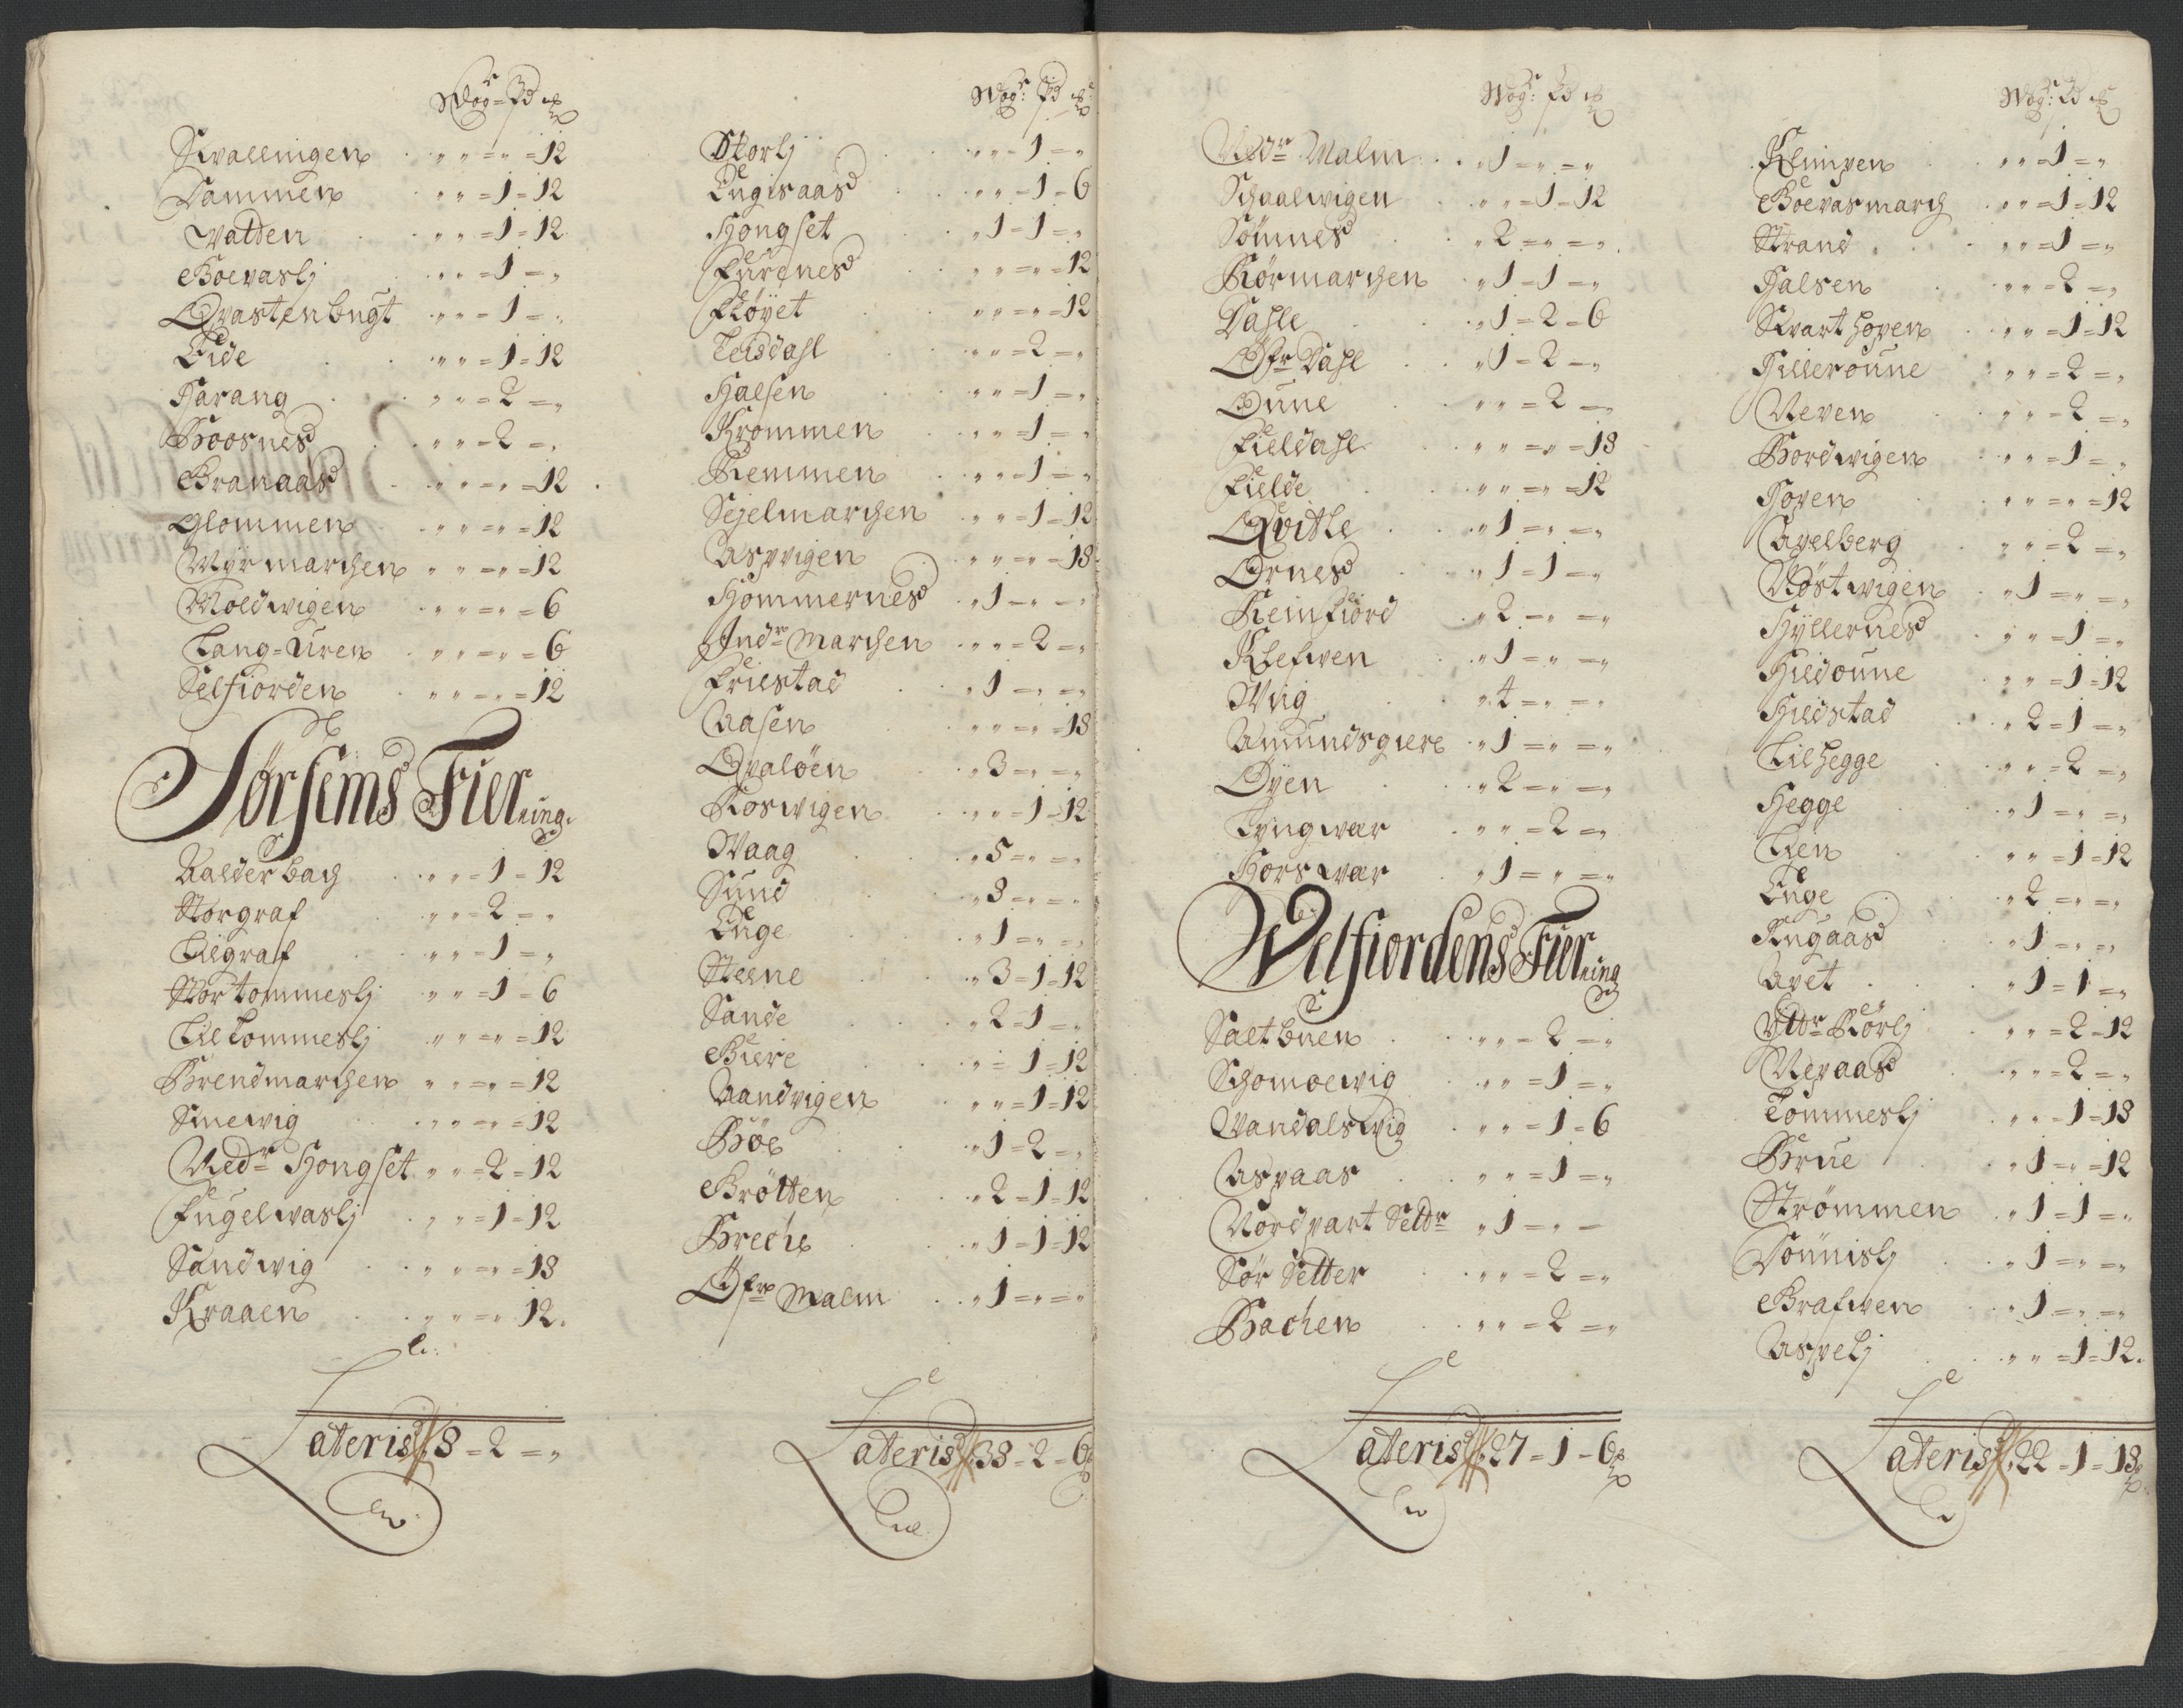 Wog = Pd
Kvallingen „ „ = „ = 12
Dammen „ „ = 1 = 12
Watten „ „ = 1 = 12
Boevaslj „ „ = 1 = „
Qvastenbugt „ „ = 1 = „
Eide „ „ = 1 = 12
Harang „ „ = 2 = „
Hoosnes „ „ = 2 = „
Granaas „ „ = „ = 12
Glommen „ „ = „ = 12
Myrmarchen „ „ = „ = 12
Moldwigen „ „ = „ = 6
Lang=Uren „ „ = „ = 6
Selfiorden „ „ = „ = 12
Sørsems Fierring.
Aalderbach „ „ = 1 = 12
Storgraf „ „ = 2 = „
Lilgraf „ „ = 1 = „
Stor tommeslj „ „ = 1 = 6
Lil tommeslj „ „ = „ = 12
Brendmarchen „ „ = „ = 12
Smevig „ „ = „ = 12
Nedr Hongset „ „ = 2 = 12
Fugelwaslj „ „ = 1 = 12
Sandwig „ „ = „ = 18
Kraaen „ „ = „ 12.
Lateris 8 = 2 = „
Wog: Pd
Storlj „ „ = 1 = „
Engisaas „ „ = 1 = 6
Hongset „ 1 = 1 = „
Furenes „ „ = „ = 12
Fløyet „ „ = „ = 12
Teisdahl „ „ = 2 = „
Halsen „ „ = 1 = „
Krommen „ „ = 1 = „
Remmen „ „ = 1 = „
Sejelmarchen „ „ = 1 = 12
Aspvigen „ „ = „ = 18
Hommernes „ 1 = „ = „
Indr Marchen „ „ = 2 = „
Frilstad „ 1 = „ = „
Aasen „ „ = „ = 18
Qvaløen „ 3 = „ = „
Roswigen „ „ = 1 = 12
Waag „ 5 = „ = „
Sund „ 8 = „ = „
Enge „ 1 = „ = „
Steene „ 3 = 1 = 12
Sande „ 2 = 1 = „
Biere „ „ = 1 = 12
Aandvigen „ „ = 1 = 12
Bøe „ 1 = 2 = „
Brøtten „ 2 = 1 = 12
Breche „ 1 = 1 = 12
Øfre Malm „ 1 = „ = „
Lateris 38 = 2 = 6
Wog: Pd
Nedr Malm „ 1 = „ = „
Schaalwigen „ „ = 1 = 12
Sømnes „ 2 = „ = „
Rørmarchen „ 1 = 1 = „
Dahle „ 1 = 2 = 6
Øfr Dahl „ 1 = 2 = „
Oune „ „ = 2 = „
Fieldahl „ „ = „ = 18
Fielde „ „ = „ = 12
Qvitle „ 1 = „ = „
Ørnes „ 1 = 1 = „
Reinfiord „ 2 = „ = „
Klefwen „ 1 = „ = „
Wiig „ 4 = „ = „
Amundsgiere „ 1 = „ = „
Øyen „ 2 = „ = „
Lyngwar „ „ = 2 = „
Horswar „ 1 = „ = „
Welfiordens Fierring
Saltbuen „ „ = 2 = „
Schomoewig „ „ = 1 = „
Wandalswig „ „ = 1 = 6
Aspaas „ „ = 1 = „
Nordpart Settr „ 1 = „ =
Sør Setter „ „ = 2 = „
Bachen „ „ = 2 = „
Lateris 27 = 1 = 6
Wog: Pd
Klimpen „ „ = 1 = „
Boevasmarch „ „ = 1 = 12
Strand „ „ = 1 = „
Halsen „ „ = 2 = „
Svarthopen „ „ = 1 = 12
Hilleroune „ „ = 2 = „
Neven „ „ = 2 = „
Hordwigen „ „ = 1 = „
Hopen „ „ = „ = 12
Avelberg „ „ = 2 = „
Nøstwigen „ 1 = „ = „
Hyllernes „ „ = 1 = „
Hildoune „ „ = 1 = 12
Hildstad „ 2 = 1 = „
Lilhegge „ „ = 2 = „
Hegge „ 1 = „ = „
Lien „ „ = 1 = 12
Enge „ 2 = „ = „
Rugaas „ 1 = „ = „
Avet „ 1 = 1 = „
Yttr Rørlj „ „ = 2 = 12
Nevaas „ „ = 2 = „
Tommeslj „ „ = 1 = 18
Brue „ 1 = „ = 12
Strømmen „ 1 = 1 = „
Sounislj „ 1 = „ = „
Grafwen „ 1 = „ = „
Aspelj „ „ = 1 = 12.
Lateris 22 = 1 = 18